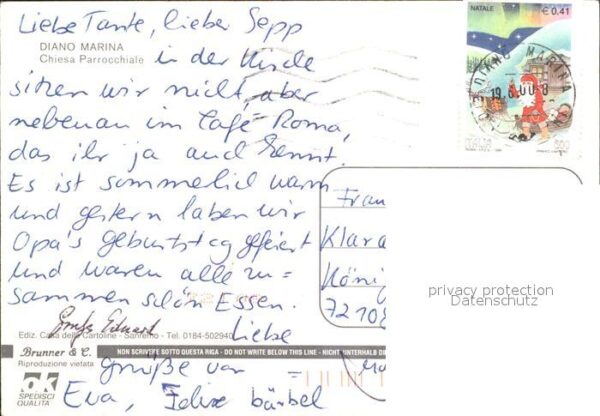 Liebe Tante, lieber Sepp
DIANO MARINA
Chiesa Parrocchiale
in der Kirche
sitzen wir nicht, aber
nebenan im Café Roma,
das ihr ja auch kennt.
Es ist sommerlich warm
und gestern haben wir
Opa's Geburtstag gefeiert
und waren alle zu=
sammen schön Essen.
Liebe
Grüße von
Eva, Felix Bärbel
Ediz. Casa delle Cartoline - Sanremo - Tel. 0184-502940
Brunner & C.
Riproduzione vietata
NON SCRIVERE SOTTO QUESTA RIGA - DO NOT WRITE BELOW THIS LINE - NICHT UNTERHALB DI
ok
SPEDISCI
QUALITÀ
NATALE
€ 0,41
ITALIA
DIANO MARINA
Frau
Klara
König
privacy protection
Datenschutz